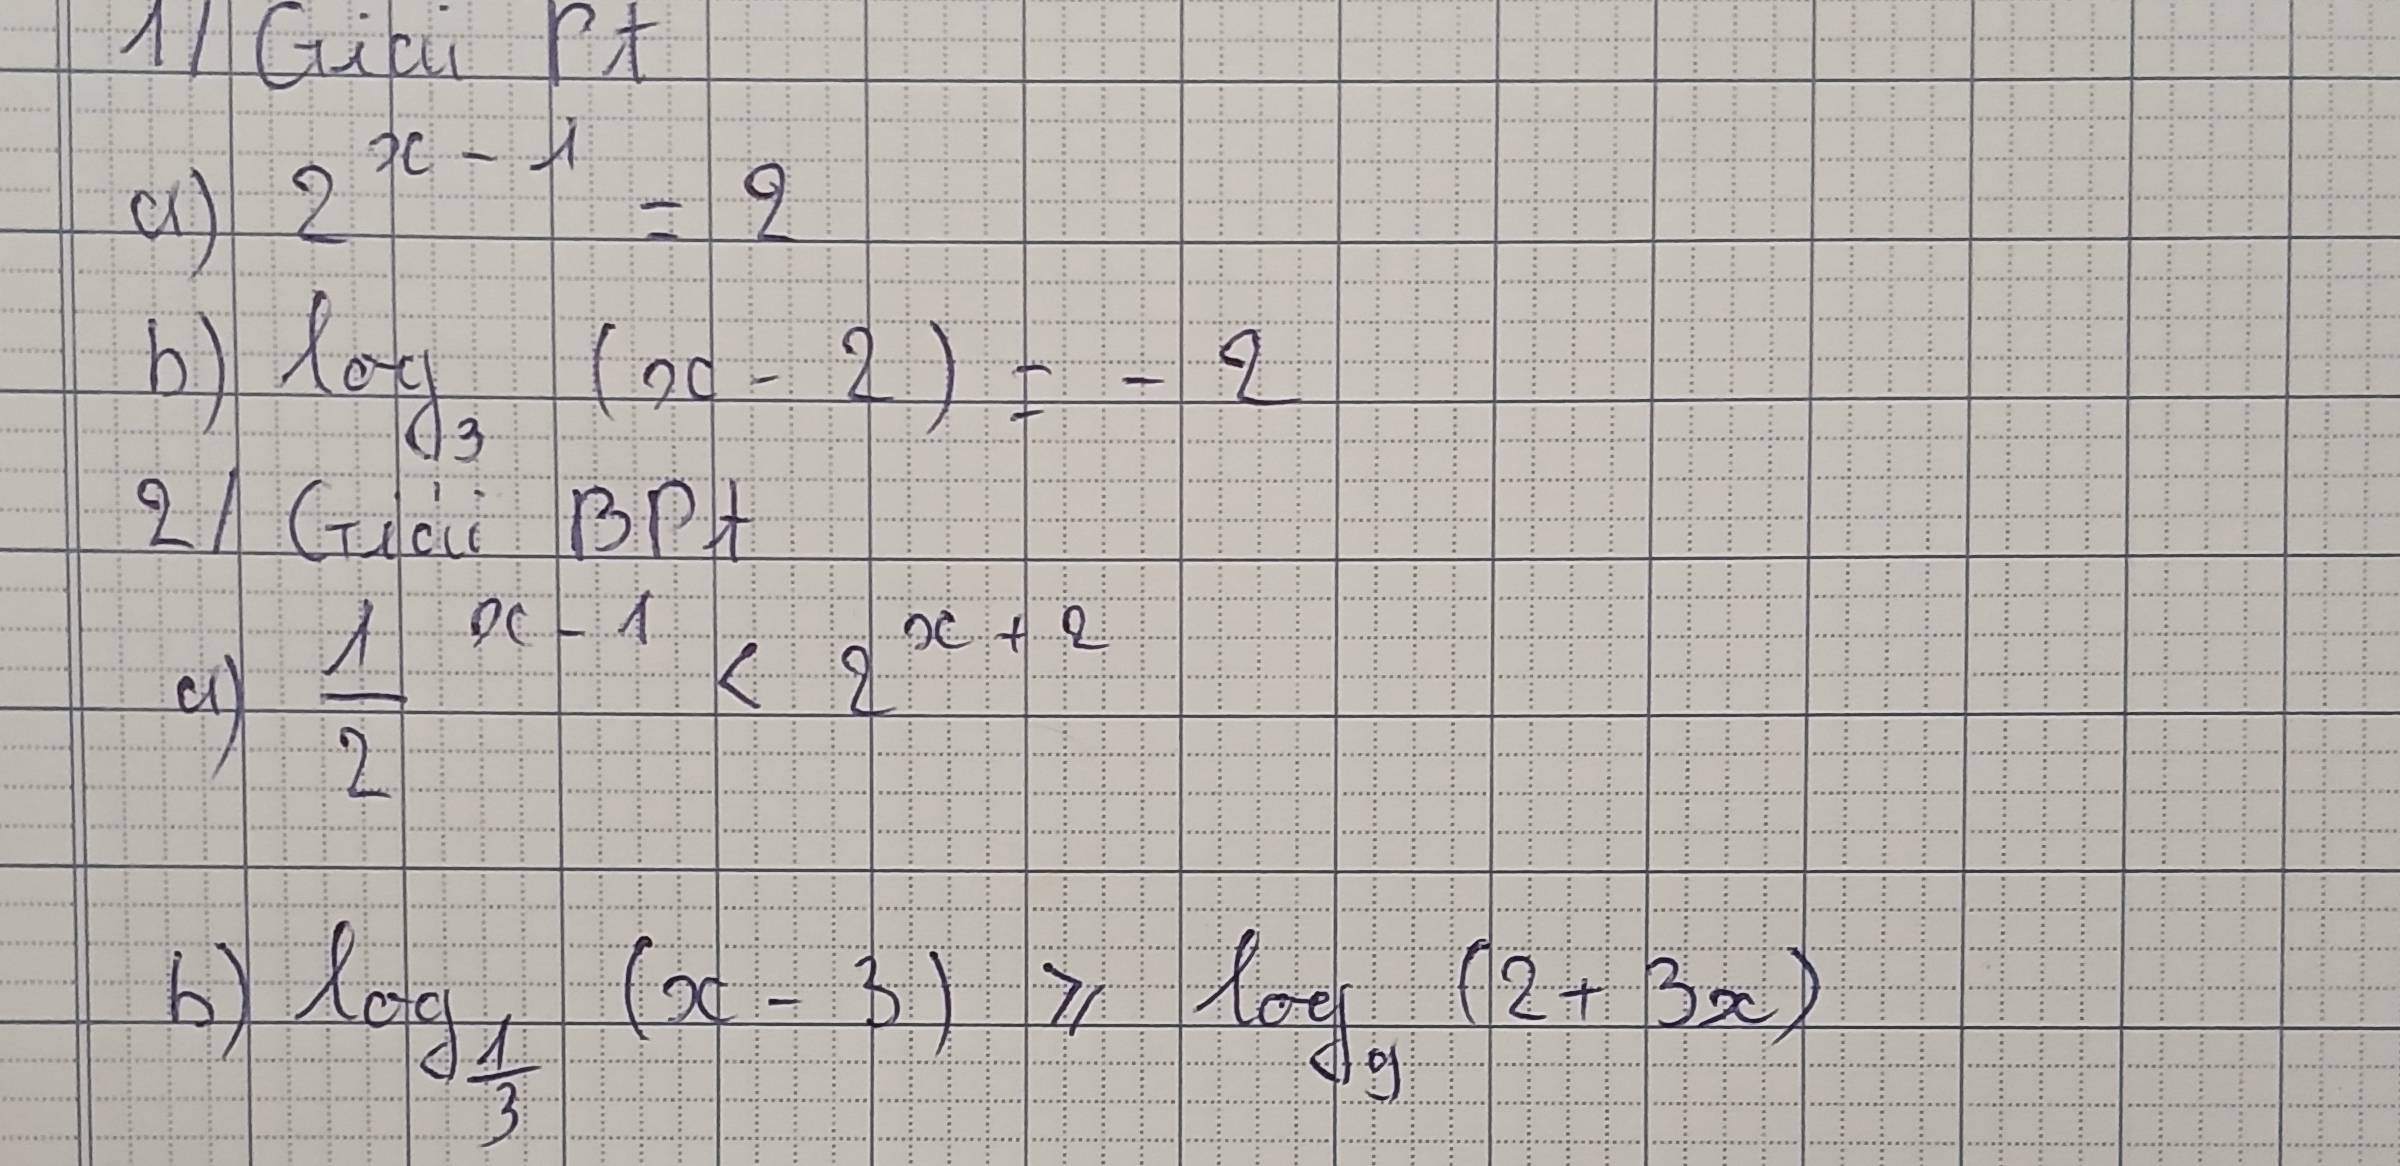 1/ Giải Pt
a) 2^{x-1} = 2
b) log_3 (x - 2) = - 2
2/ Giải BPt
a) \frac{1}{2}^{x-1} < 2^{x+2}
b) log_{\frac{1}{3}} (x - 3) ⩾ log_9 (2 + 3x)